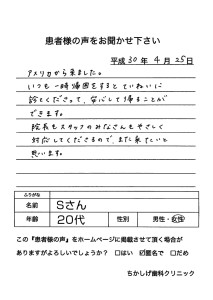 患者様の声をお聞かせ下さい
平成 30年 4月 25日
アメリカから来ました。
いつも一時帰国をするとていねいに
診てくださって、安心して帰ることが
できます。
院長もスタッフのみなさんもやさしく
対応してくださるので、また来たいと
思います。
ふりがな
名前 Sさん
年齢 20代 性別 男性・女性
この『患者様の声』をホームページに掲載させて頂く場合が
ありますがよろしいでしょうか? □はい ☑匿名で □だめ
ちかしげ歯科クリニック